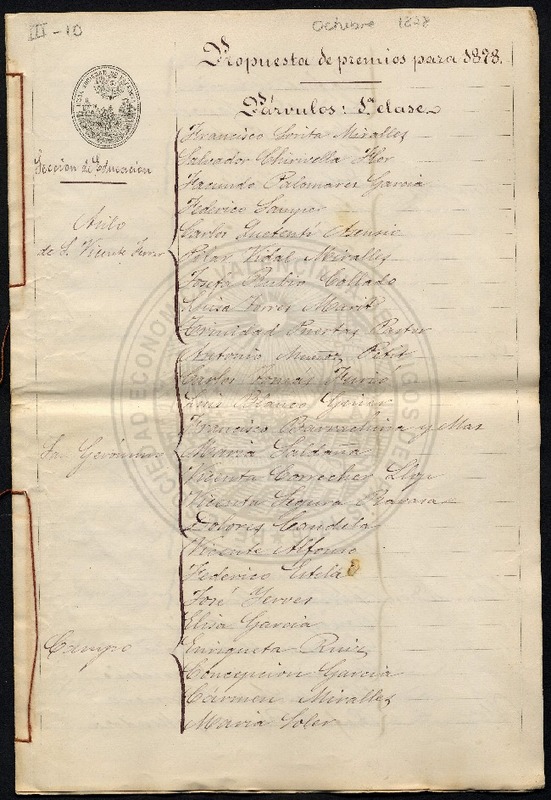 III-10
Octubre 1878
Propuesta de premios para 1878.
Párvulos: 1ª clase
Sección de Educación
Asilo
de S. Vicente Ferrer
Francisco Sorita Miralles
Salvador Chirivella Flor
Facundo Palomares Garcia
Federico Samper
Carlos Asensio
Pilar Vidal Miralles
Josefa Rubio Collado
Luisa Torres
Trinidad Puertas
Antonio Muñoz Petit
Carlos Tomas Furió
Luis Blanco
Francisco Barrachina y Mas
San Gerónimo
Maria Saldaña
Vicenta Correcher
Vicenta Segura
Dolores Candela
Vicente Alfonso
Federico Estela
José Ferrer
Elisa Garcia
Campo
Enriqueta Ruiz
Concepcion Garcia
Cármen Miralles
Maria Soler